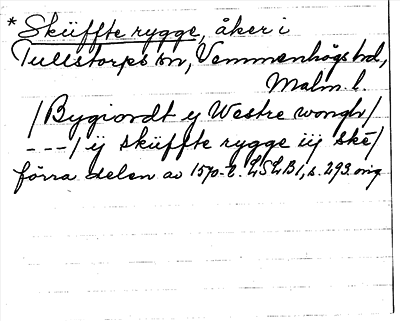 * Sküffte rygge, åker i
Tullstorps sn, Vemmenhögs hd,
Malm. l.
/Bygiordt y Westre wongh/
---/ ÿ sküffte rygge iij ske/
förra delen av 1570-t. LSLB1, s. 293. orig